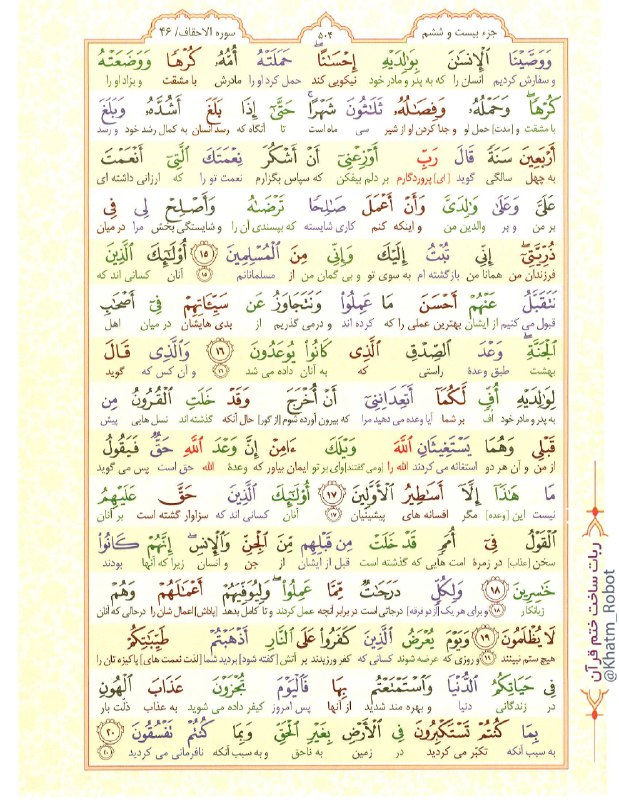 جزء بیست و ششم
۵۰۴
سوره الاحقاف/ ۴۶
وَوَصَّيْنَا ٱلْإِنسَٰنَ بِوَٰلِدَيْهِ إِحْسَٰنًا ۖ حَمَلَتْهُ أُمُّهُۥ كُرْهًا وَوَضَعَتْهُ
و سفارش کردیم انسان را که به پدر و مادر خود نیکویی کند حمل کرد او را مادرش با مشقت و بزاد او را
كُرْهًا ۖ وَحَمْلُهُۥ وَفِصَٰلُهُۥ ثَلَٰثُونَ شَهْرًا ۚ حَتَّىٰٓ إِذَا بَلَغَ أَشُدَّهُۥ وَبَلَغَ
با مشقت و [مدت] حمل او و جدا کردن او از شیر سی ماه است تا آنگاه که رسد انسان به کمال رشد خود و رسد
أَرْبَعِينَ سَنَةً قَالَ رَبِّ أَوْزِعْنِىٓ أَنْ أَشْكُرَ نِعْمَتَكَ ٱلَّتِىٓ أَنْعَمْتَ
به چهل سالگی گوید [ای] پروردگارم بر دلم بیفکن که سپاس بگزارم نعمت تو را که ارزانی داشته ای
عَلَىَّ وَعَلَىٰ وَٰلِدَىَّ وَأَنْ أَعْمَلَ صَٰلِحًا تَرْضَىٰهُ وَأَصْلِحْ لِى فِى
بر من و بر والدین من و اینکه کنم کاری شایسته که بپسندی آن را و شایستگی بخش مرا در میان
ذُرِّيَّتِىٓ ۖ إِنِّى تُبْتُ إِلَيْكَ وَإِنِّى مِنَ ٱلْمُسْلِمِينَ ۱۵ أُو۟لَٰٓئِكَ ٱلَّذِينَ
فرزندان من همانا من بازگشته ام به سوی تو و بی گمان من از مسلمانانم ۱۵ آنان کسانی اند که
نَتَقَبَّلُ عَنْهُمْ أَحْسَنَ مَا عَمِلُوا۟ وَنَتَجَاوَزُ عَن سَيِّـَٔاتِهِمْ فِىٓ أَصْحَٰبِ
قبول می کنیم از ایشان بهترین عملی را که کرده اند و درمی گذریم از بدی هایشان در میان اهل
ٱلْجَنَّةِ ۖ وَعْدَ ٱلصِّدْقِ ٱلَّذِى كَانُوا۟ يُوعَدُونَ ۱۶ وَٱلَّذِى قَالَ
بهشت طبق وعدهٔ راستی که به آنان داده می شد ۱۶ و آن کس که گوید
لِوَٰلِدَيْهِ أُفٍّ لَّكُمَآ أَتَعِدَانِنِىٓ أَنْ أُخْرَجَ وَقَدْ خَلَتِ ٱلْقُرُونُ مِن
به پدر و مادر خود اُف بر شما آیا وعده می دهید مرا که بیرون آورده شوم [از گور] حال آنکه گذشته اند نسل هایی پیش
قَبْلِى وَهُمَا يَسْتَغِيثَانِ ٱللَّهَ وَيْلَكَ ءَامِنْ إِنَّ وَعْدَ ٱللَّهِ حَقٌّ فَيَقُولُ
از من و آن هر دو استغاثه می کردند الله را [و می گفتند] وای بر تو ایمان بیاور که وعدهٔ الله حق است پس می گوید
مَا هَٰذَآ إِلَّآ أَسَٰطِيرُ ٱلْأَوَّلِينَ ۱۷ أُو۟لَٰٓئِكَ ٱلَّذِينَ حَقَّ عَلَيْهِمُ
نیست این [وعده] مگر افسانه های پیشینیان ۱۷ آنان کسانی اند که سزاوار گشته است بر آنان
ٱلْقَوْلُ فِىٓ أُمَمٍ قَدْ خَلَتْ مِن قَبْلِهِم مِّنَ ٱلْجِنِّ وَٱلْإِنسِ ۖ إِنَّهُمْ كَانُوا۟
سخن [عذاب] در زمرهٔ امت هایی که گذشته است قبل از ایشان از جن و انسان زیرا که آنها بودند
خَٰسِرِينَ ۱۸ وَلِكُلٍّ دَرَجَٰتٌ مِّمَّا عَمِلُوا۟ ۖ وَلِيُوَفِّيَهُمْ أَعْمَٰلَهُمْ وَهُمْ
زیانکار ۱۸ و برای هر یک [از دو فرقه] درجاتی است در برابر آنچه عمل کردند و تا کامل بدهد [پاداش] اعمال شان را درحالی که آنان
لَا يُظْلَمُونَ ۱۹ وَيَوْمَ يُعْرَضُ ٱلَّذِينَ كَفَرُوا۟ عَلَى ٱلنَّارِ أَذْهَبْتُمْ طَيِّبَٰتِكُمْ
هیچ ستم نبینند ۱۹ و روزی که عرضه شوند کسانی که کفر ورزیدند بر آتش [گفته شود] بردید شما [لذت نعمت های] پاکیزه تان را
فِى حَيَاتِكُمُ ٱلدُّنْيَا وَٱسْتَمْتَعْتُم بِهَا فَٱلْيَوْمَ تُجْزَوْنَ عَذَابَ ٱلْهُونِ
در زندگانی دنیا و بهره مند شدید از آنها پس امروز کیفر داده می شوید به عذاب ذلّت بار
بِمَا كُنتُمْ تَسْتَكْبِرُونَ فِى ٱلْأَرْضِ بِغَيْرِ ٱلْحَقِّ وَبِمَا كُنتُمْ تَفْسُقُونَ ۲۰
به سبب آنکه تکبّر می کردید در زمین به ناحق و به سبب آنکه نافرمانی می کردید ۲۰
ربات ساخت ختم قرآن
@Khatm_Robot